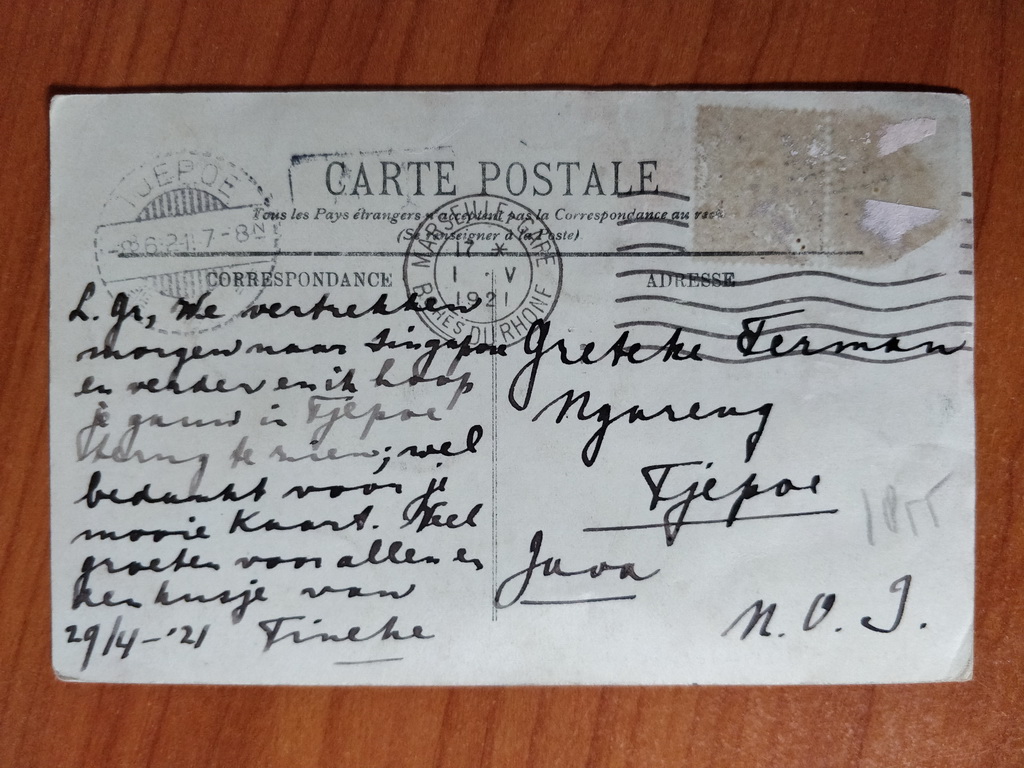 CARTE POSTALE
Tous les Pays étrangers n'acceptent pas la Correspondance au
(Se renseigner à la Poste)
TJEPOE
8.6.21.7-8N
MARSEILLE GARE
17 *
1 · V
1921
BCHES DU RHONE
CORRESPONDANCE
L. Gr, We vertrekken
morgen naar Singapore
en verder en ik hoop
je gauw in Tjepoe
terug te zien; wel
bedankt voor je
mooie Kaart. Veel
groeten voor allen en
een kusje van
29/4-'21 Tineke
ADRESSE
Greteke Terman
Ngareng
Tjepoe
Java
N. O. I.